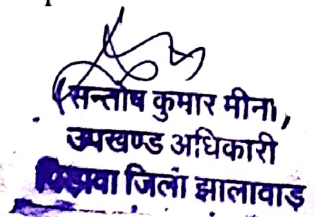 (सन्तोष कुमार मीना),
उपखण्ड अधिकारी
पिड़ावा जिला झालावाड़